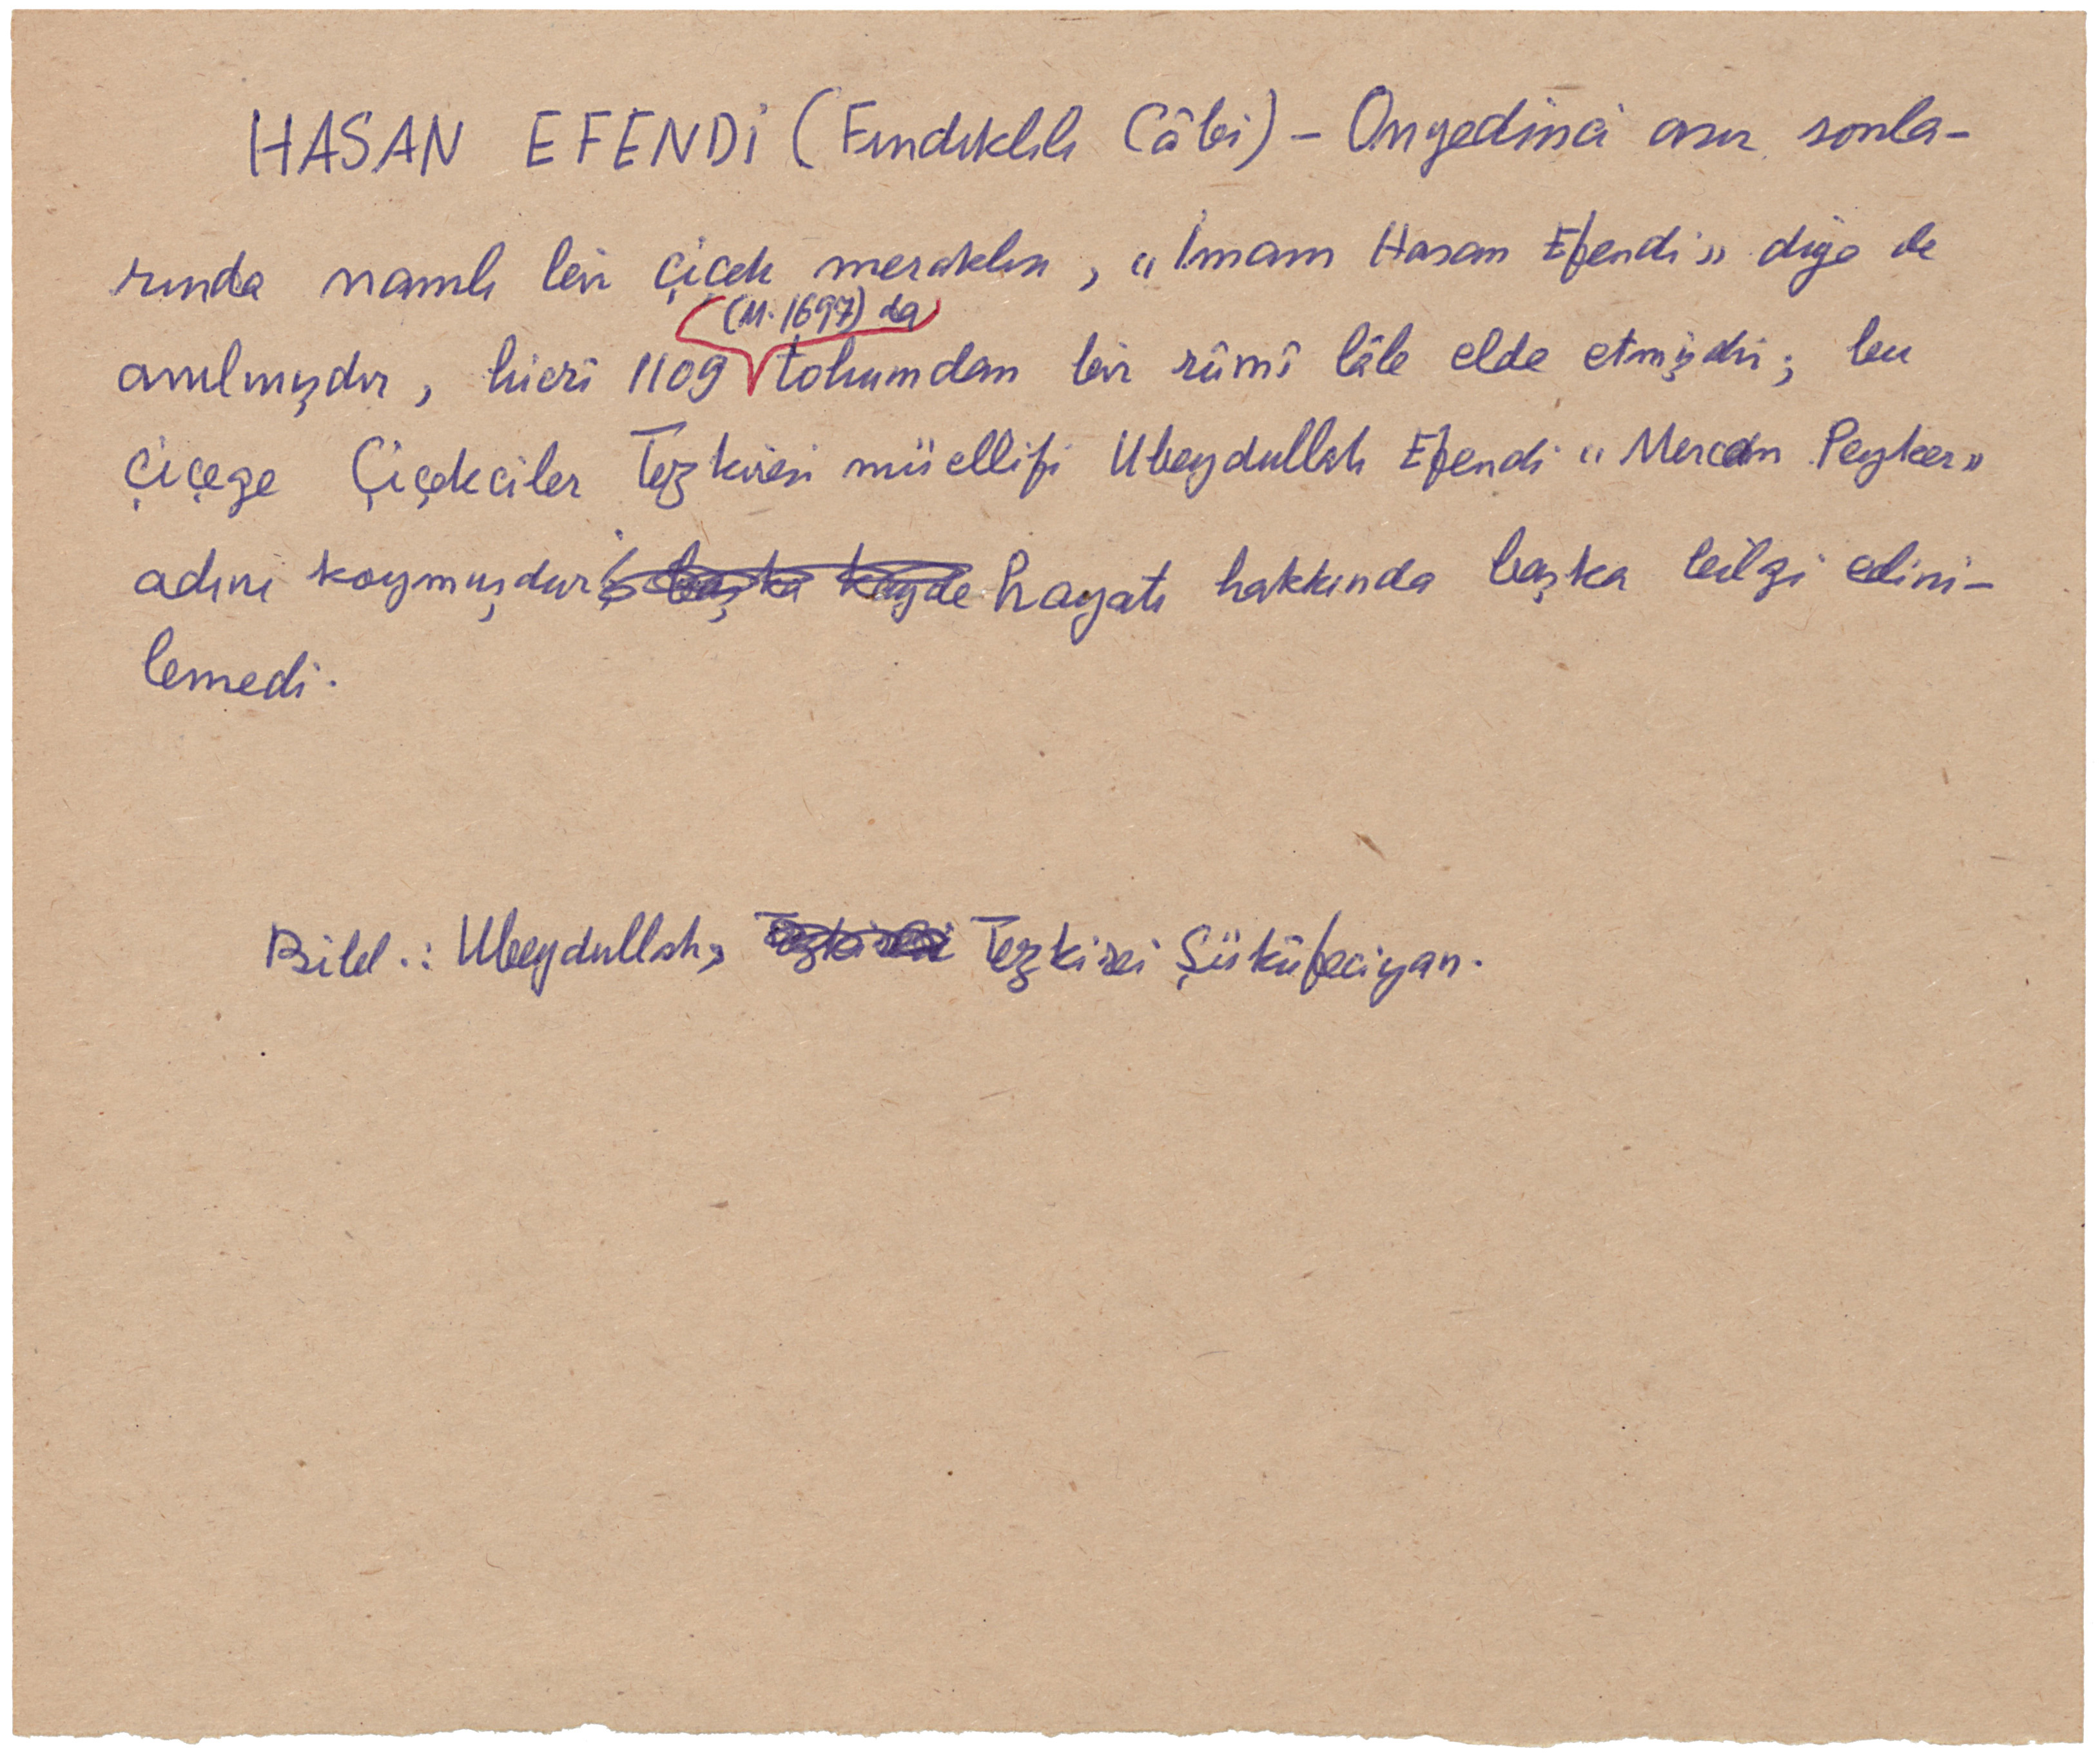 HASAN EFENDİ (Fındıklılı Câbi) – Onyedinci asır sonla-
rında namlı bir çiçek meraklısı, "İmam Hasan Efendi" diye de
(M. 1697) da
anılmışdır, hicrî 1109 tohumdan bir rûmî lâle elde etmişdir; bu
çiçeğe Çiçekciler Tezkiresi müellifi Ubeydullah Efendi "Mercan Peyker"
adını koymuşdur; başka kayde hayatı hakkında başka bilgi edini-
lemedi.
Bibl.: Ubeydullah, Tezkiresi Tezkirei Şükûfeciyan.